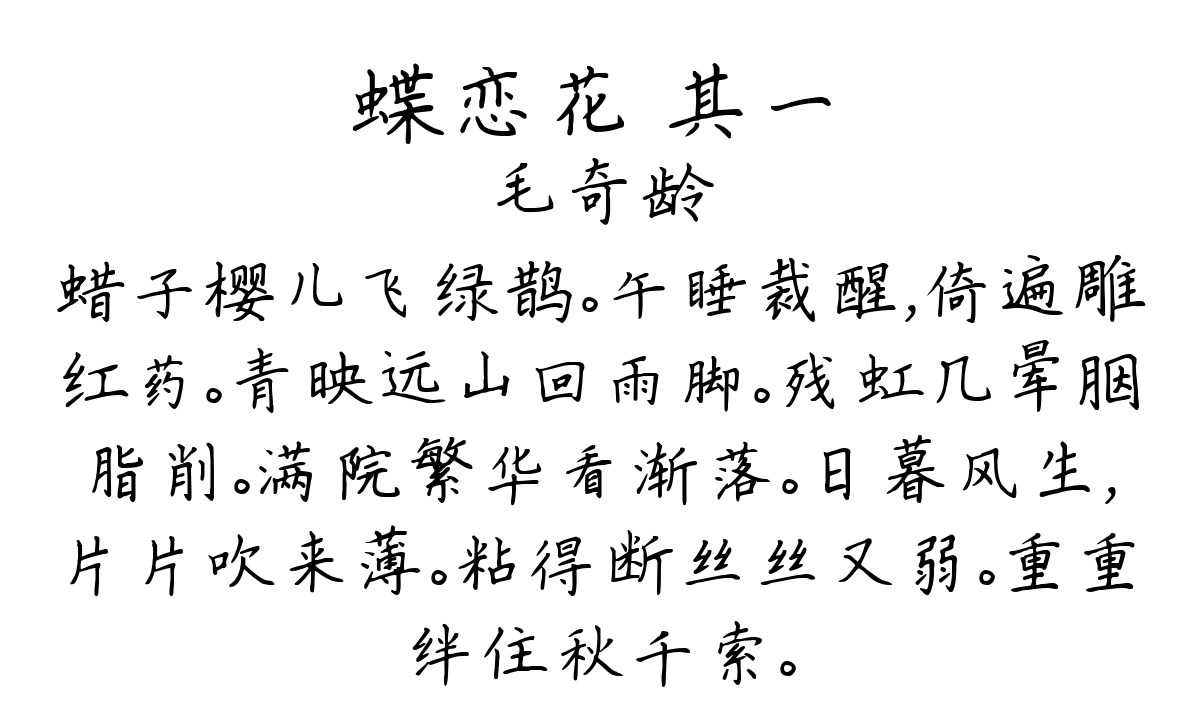 蝶恋花 其一
毛奇龄
蜡子樱儿飞绿鹊。午睡裁醒,倚遍雕
红药。青映远山回雨脚。残虹几晕胭
脂削。满院繁华看渐落。日暮风生,
片片吹来薄。粘得断丝丝又弱。重重
绊住秋千索。